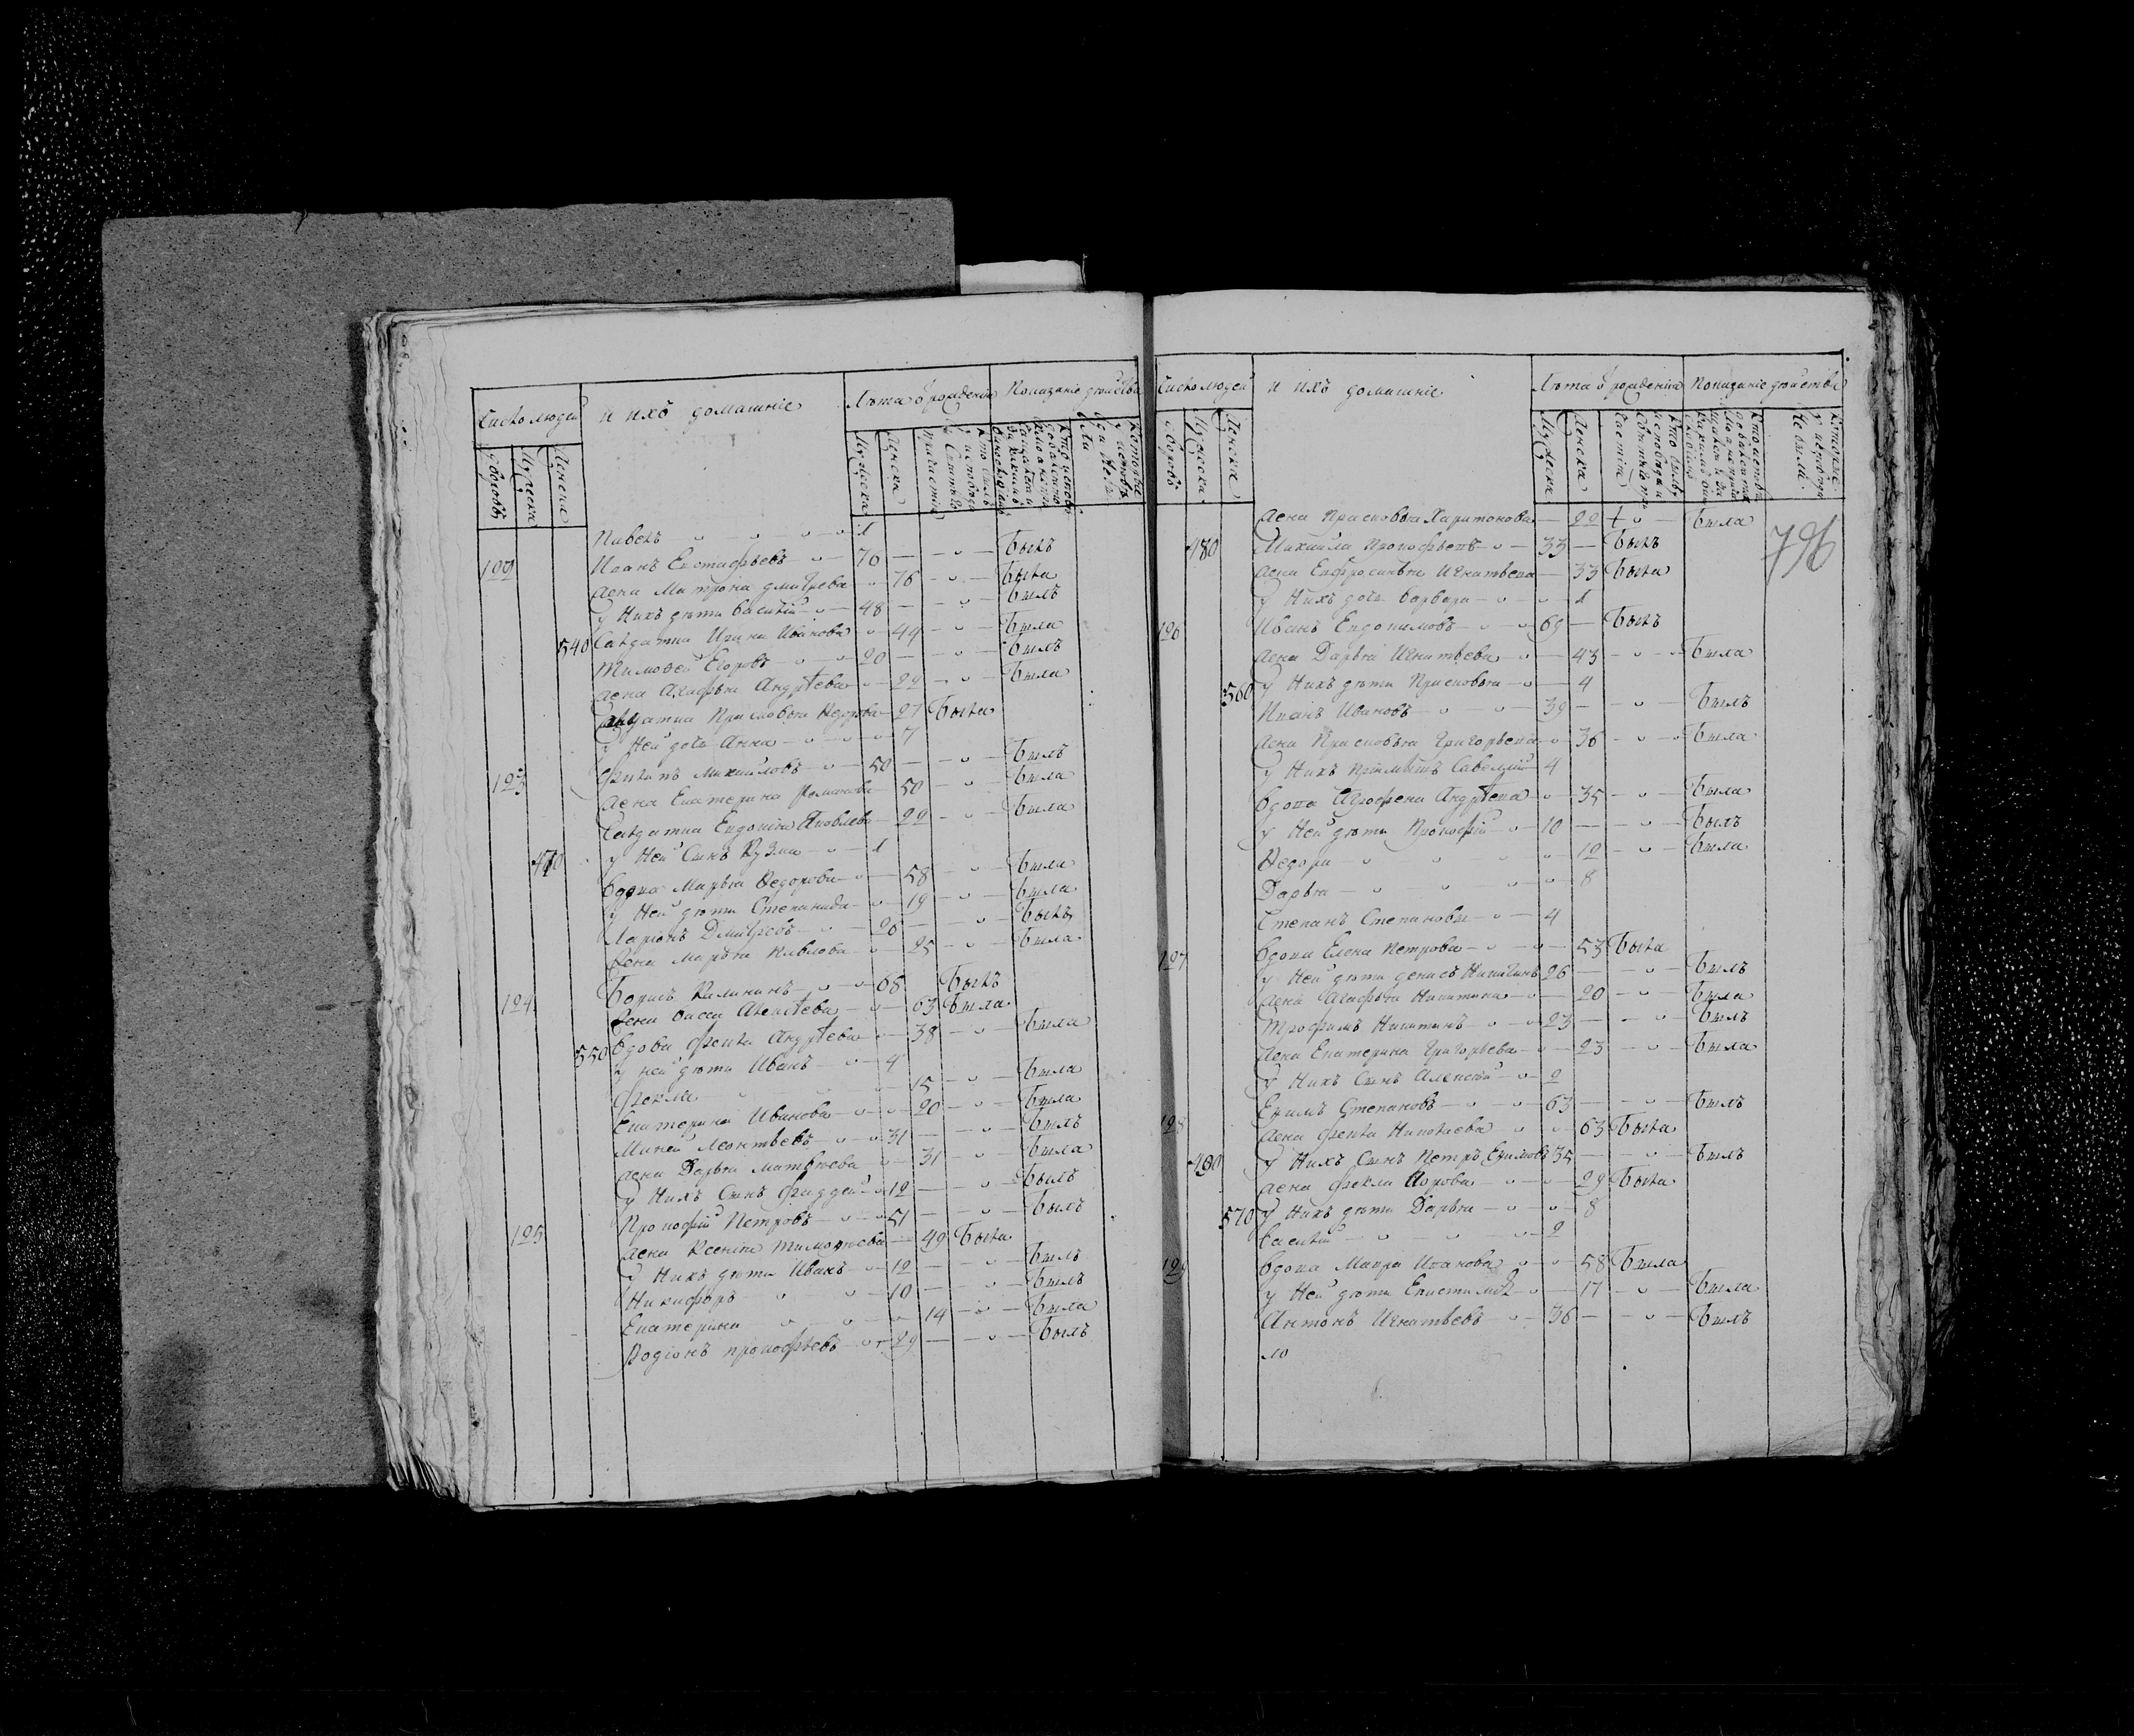 Число людей
и ихъ домашніе
Лѣта ѿ рожденія
Показаніе дѣйства
дворовъ
Мужеска
Женска
Мужеска
Женска
Павелъ 1
122 Иванъ Евстафьевъ 70 — Былъ
Жена Матрона Дмитрева 76 — Была
у Нихъ дѣти Василій 48 — Былъ
540 Салдатка Ирина Иванова 44 — Была
Тимофей Егоровъ 20 — Былъ
Жена Агафья Андрѣева 22 — Была
Салдатка Прасковья Ѳедорова 27 Была
у Ней дочь Анна 7
123 Филипъ Михайловъ 50 — Былъ
Жена Екатерина Романова 50 — Была
Салдатка Евдокія Яковлева 22 — Была
470 у Ней Сынъ Кузма 1
Вдова Марья Ѳедорова 58 — Была
у Ней дѣти Степанида 19 — Была
Ларіонъ Дмитревъ 26 — Былъ
Жена Марья Павлова 25 — Была
124 Борисъ Калининъ 68 Былъ
Жена Васса Алексѣева 63 Была
550 Вдова Фекла Андрѣева 38 — Была
у ней дѣти Иванъ 4
Фекла 15 — Была
Екатерина Иванова 20 — Была
Миней Леонтьевъ 31 — Былъ
Жена Дарья Матвѣева 31 — Была
у Нихъ Сынъ Фаддей 12 — Былъ
125 Прокофій Петровъ 51 — Былъ
Жена Ксенія Тимофеева 49 Была
у Нихъ дѣти Иванъ 12 — Былъ
Никифоръ 10 — Былъ
Екатерина 14 — Была
Родіонъ Прокофьевъ 29 — Былъ
Число людей
и ихъ домашніе
Лѣта ѿ рожденія
Показаніе дѣйства
дворовъ
Мужеска
Женска
Мужеска
Женска
Не были
796
Жена Прасковья Харитонова 22 — Была
480 Михайла Прокофьевъ 33 — Былъ
Жена Евфросинья Игнатьева 33 Была
у Нихъ дочь Варвара 1
126 Иванъ Евдокимовъ 69 — Былъ
Жена Дарья Игнатьева 43 — Была
560 у Нихъ дѣти Прасковья 4
Иванъ Ивановъ 39 — Былъ
Жена Прасковья Григорьева 36 — Была
у Нихъ Пріимышъ Савелий 4
Вдова Аграфена Андрѣева 35 — Была
у Ней дѣти Прокофій 10 — Былъ
Ѳедора 12 — Была
Дарья 8
Степанъ Степановъ 4
127 Вдова Елена Петрова 53 Была
у Ней дѣти Денисъ Никитинъ 26 — Былъ
Жена Агафья Никитина 20 — Была
Трофимъ Никитинъ 23 — Былъ
Жена Екатерина Григорьева 23 — Была
у Нихъ Сынъ Алексій 2
128 Ефимъ Степановъ 63 — Былъ
Жена Фекла Николаева 63 Была
490 у Нихъ Сынъ Петръ Ефимовъ 35 — Былъ
Жена Фекла Иорова 29 Была
570 у Нихъ дѣти Дарья 8
Василій 2
129 Вдова Мавра Иванова 58 Была
у Ней дѣти Епистимія 17 — Была
Антонъ Игнатьевъ 36 — Былъ
ло